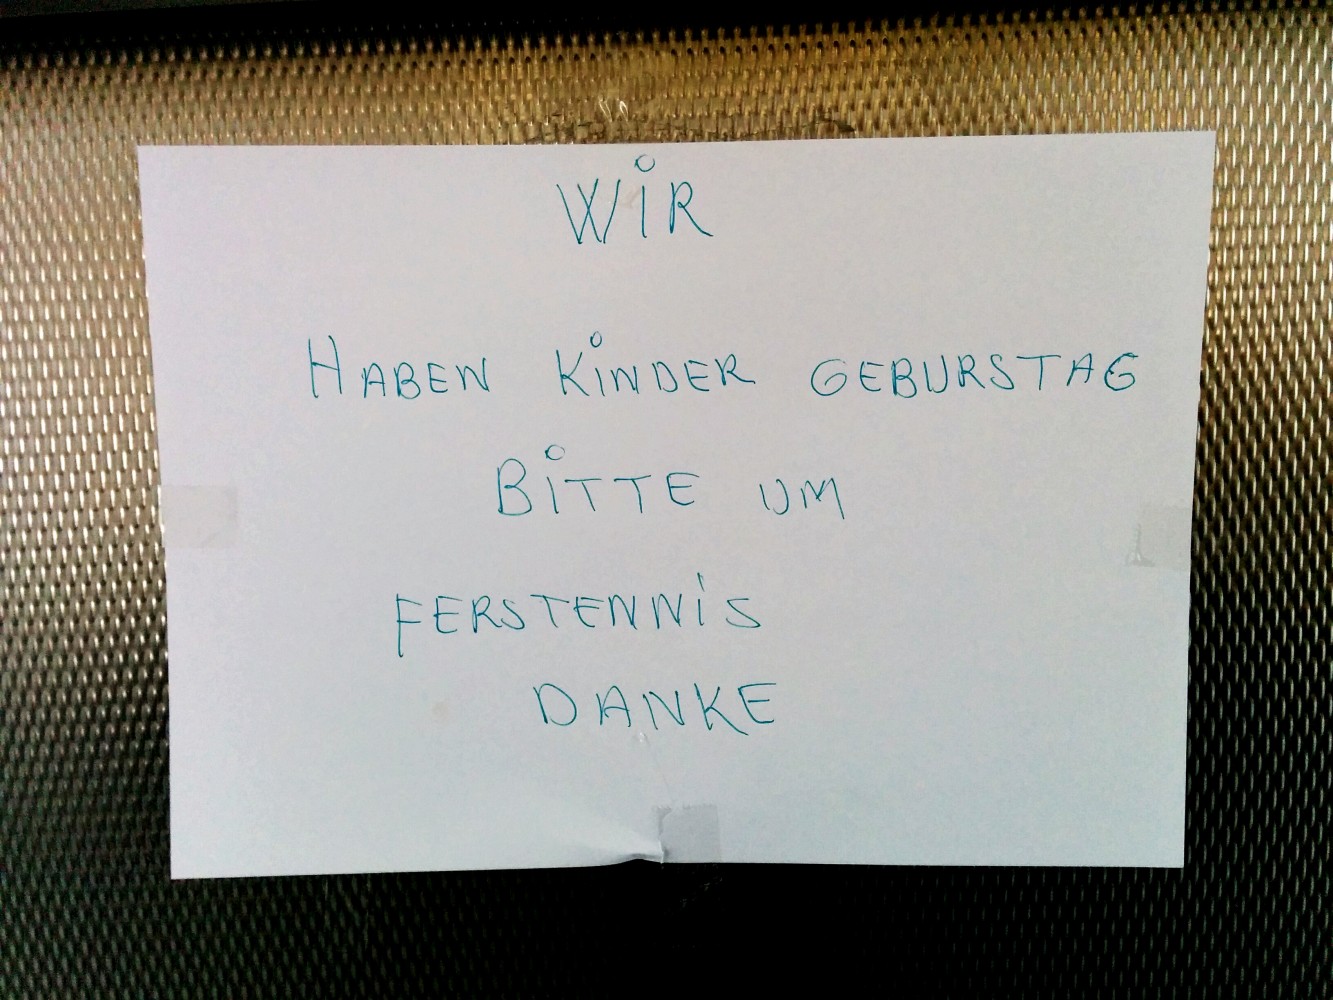 WiR
HABEN KiNDER GEBURSTAG
BiTTE UM
FERSTENNiS
DANKE